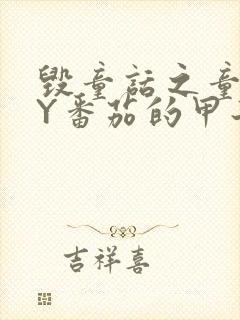 毁童话之童
Y番茄的甲
吉祥喜